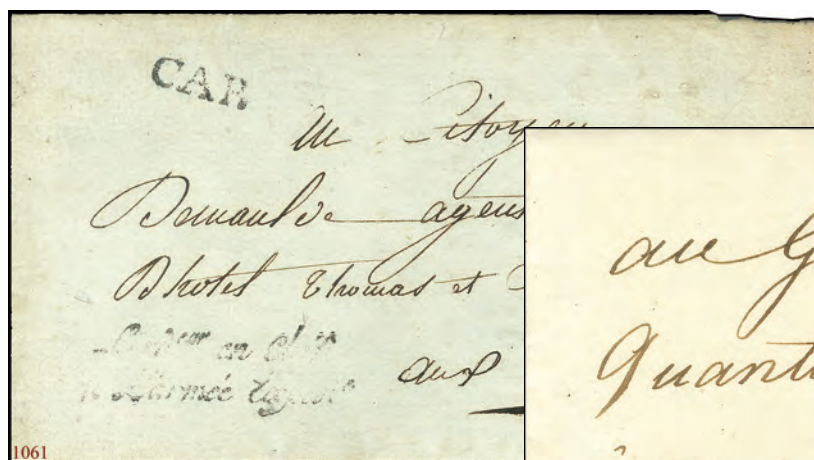 CAR
au Citoyen
Demaulde agens
Dhotel Thomas et
en chef
Larmée
aux
1061
au G
Quant